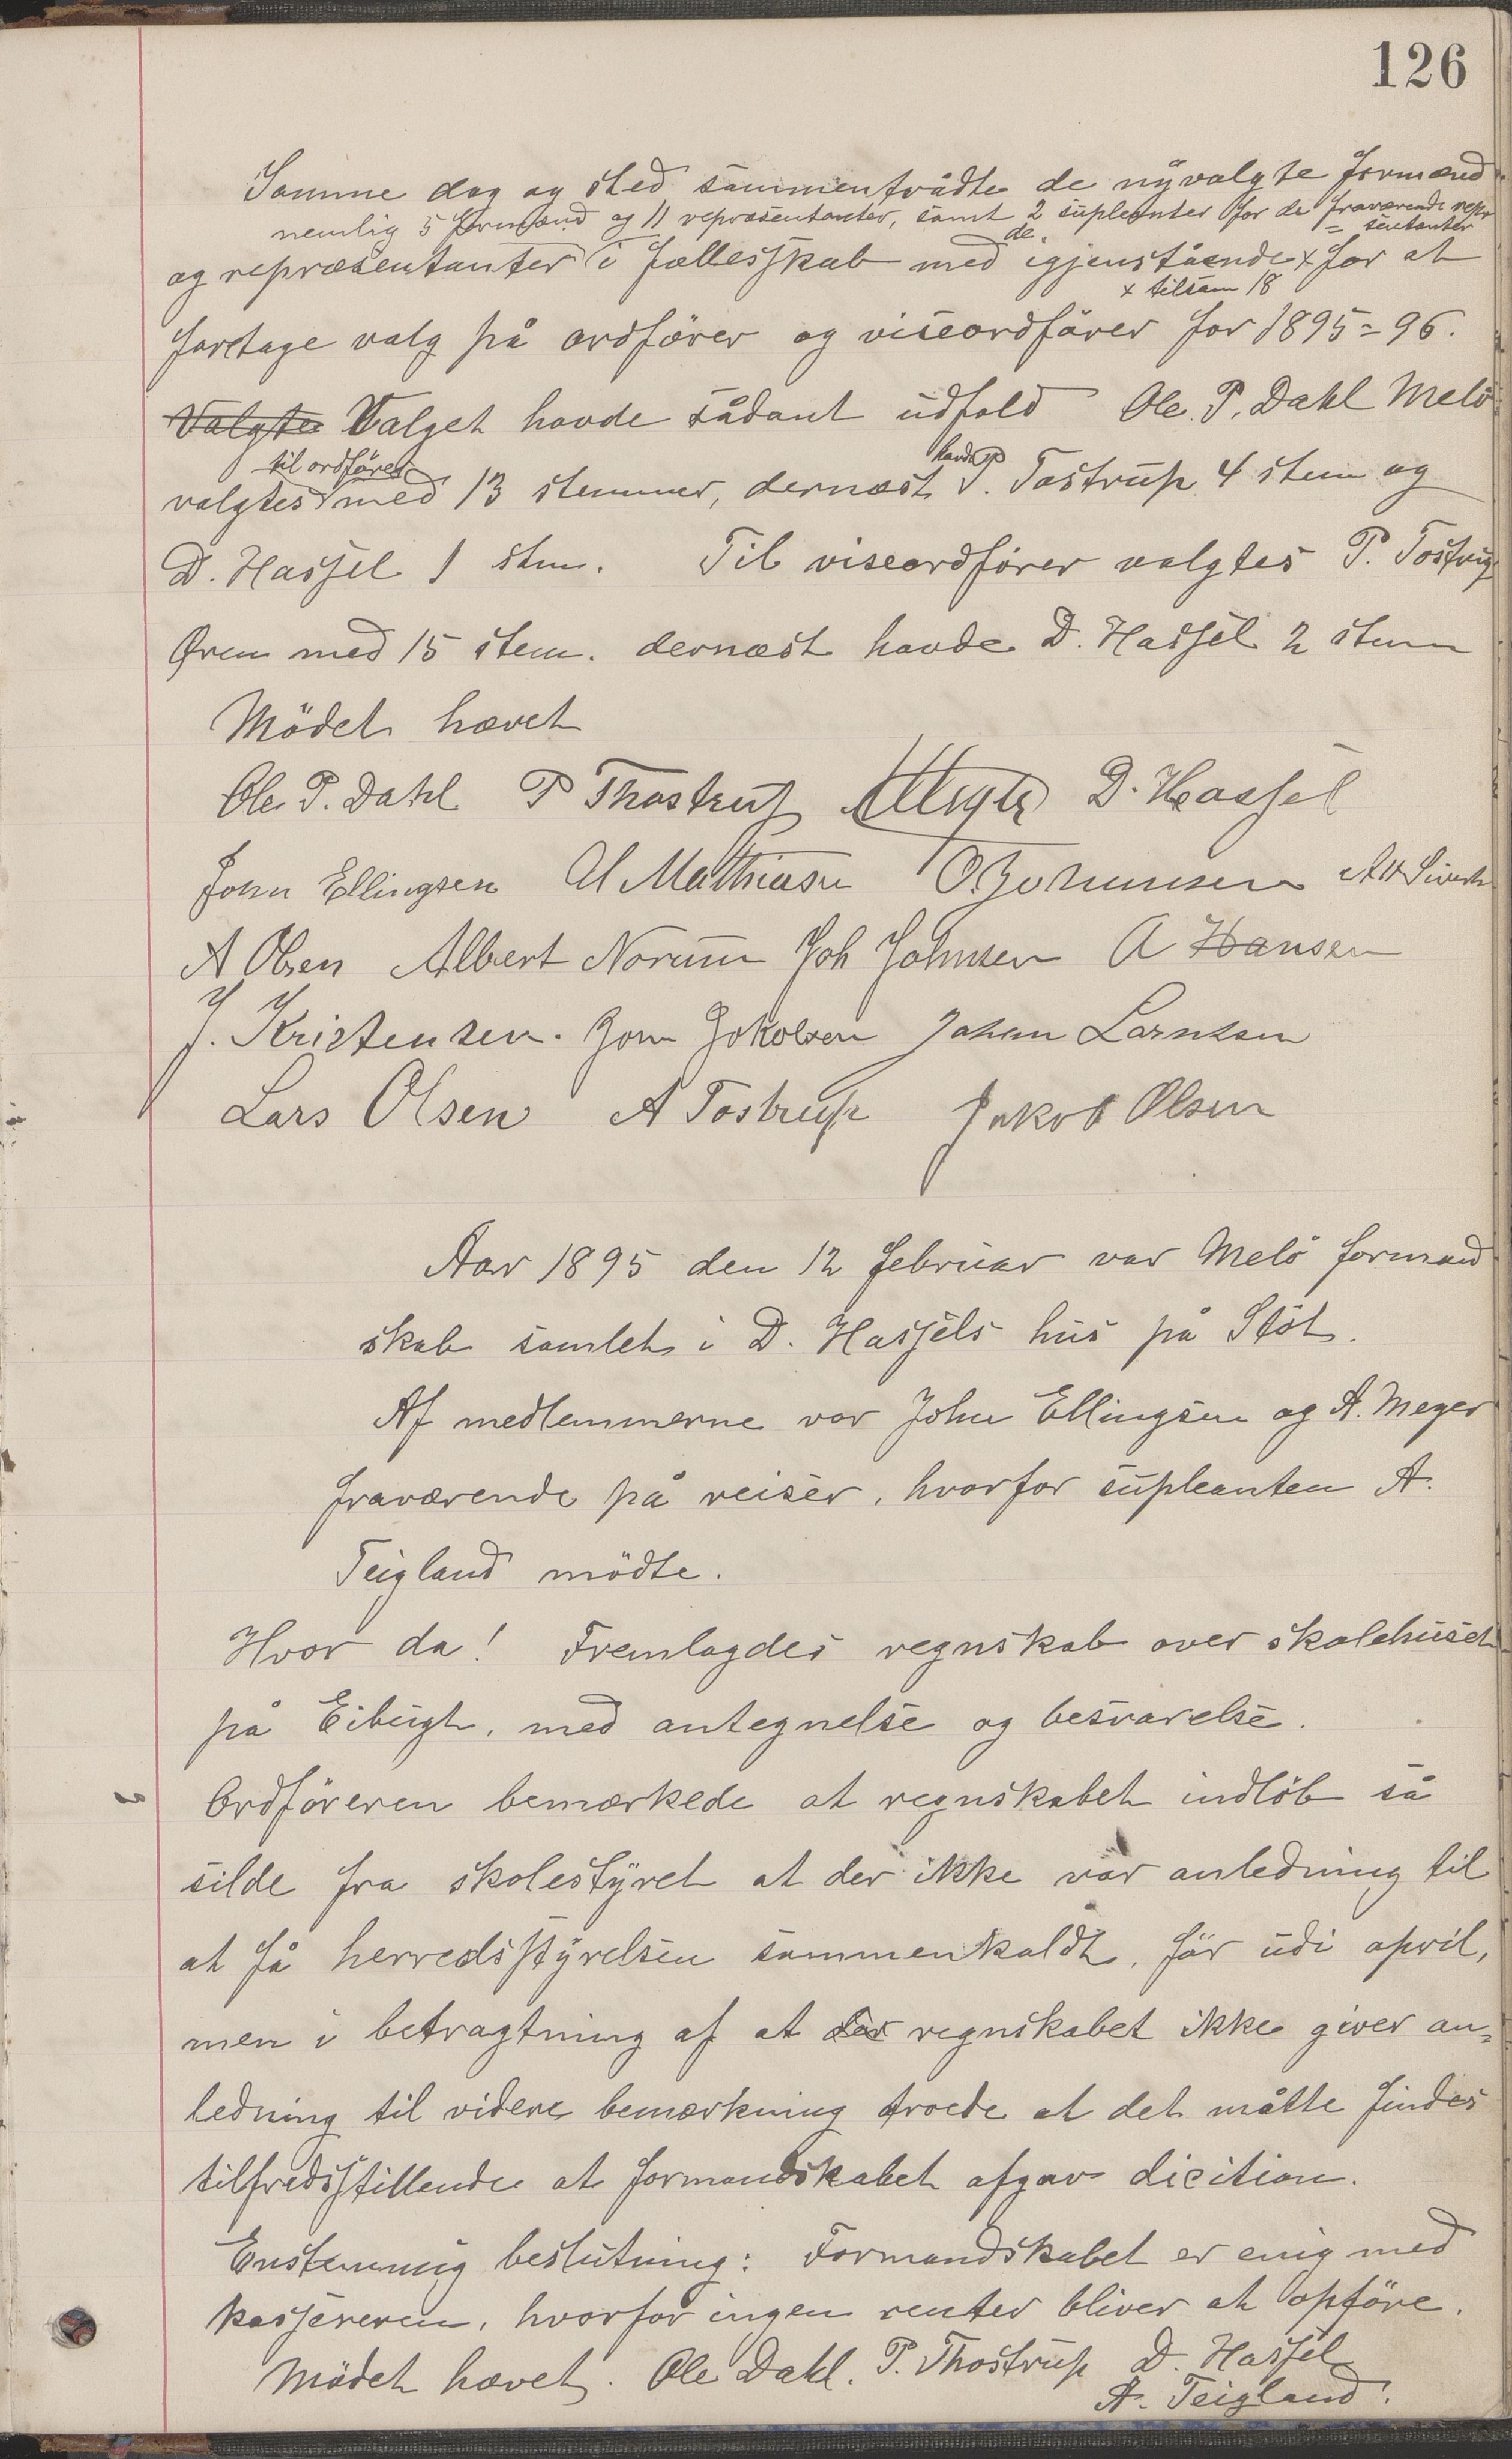 126
Samme dag og sted sammentrådte de nyvalgte formænd
nemlig 5 formænd og 11 repræsentanter, samt 2 supleanter for de fraværende repr
= sentanter
og repræsentanter i fællesskab med de igjenstående x for at
x tilsam 18
foretage valg på ordförer og viseordförer for 1895=96.
Valgte Valget havde sådant udfald Ole P. Dahl Melö
valgtes til ordförer med 13 stemmer, dernæst havde P. Tostrup 4 stem og
D. Hassel 1 stm. Til viseordförer valgtes P. Tostrup
Øren med 15 stem. dernæst havde D. Hassel 2 stem
Mödet hævet
Ole P. Dahl P Thostrup D. Hassel
John Ellingsen Ol Mathiasen O. Johannesen
A Olsen Albert Norum Joh Johnsen A Hansen
J. Kristensen. Jon Jokobsen Johan Larntsen
Lars Olsen A Tostrup Jakob Olsen
Aar 1895 den 12 februar var Melö formand
skab samlet i D. Hassels hus på Stöt.
Af medlemmerne var John Ellingsen og A. Meyer
fraværende på reiser, hvorfor supleanten A.
Teigland mödte.
Hvor da! Fremlagdes regnskab over skolehuset
på Eibugt, med antegnelse og besvarelse.
Ordföreren bemærkede at regnskabet indlöb så
silde fra skolestyret at der ikke var anledning til
at få herredsstyrelsen sammenkaldt, för udi april,
men i betragtning af at der regnskabet ikke giver an=
ledning til videre bemærkning troede at det måtte findes
tilfredsstillende at formandskabet afgav dicition.
Enstemmig beslutning: Formandskabet er enig med
kassereren, hvorfor ingen renter bliver at opföre.
Mödet hævet. Ole Dahl. P. Thostrup D. Hassel
A. Teigland.